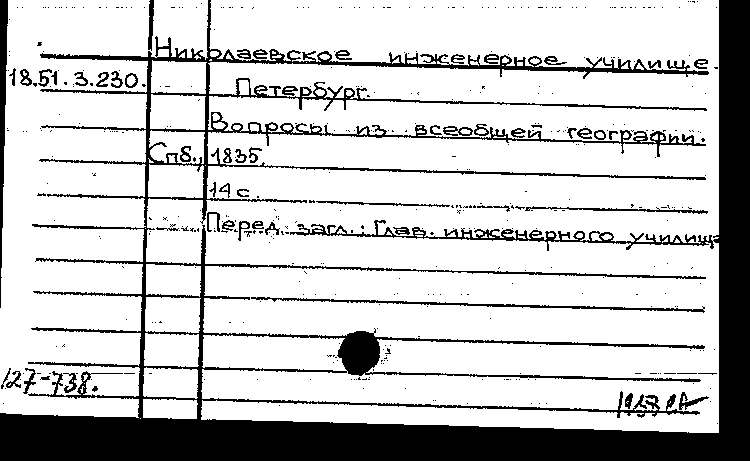 Николаевское инженерное училище.
18.51.3.230. Петербург.
Вопросы из всеобщей географии.
Спб., 1835.
14 с.
Перед загл.: Глав. инженерного училища
127-738.